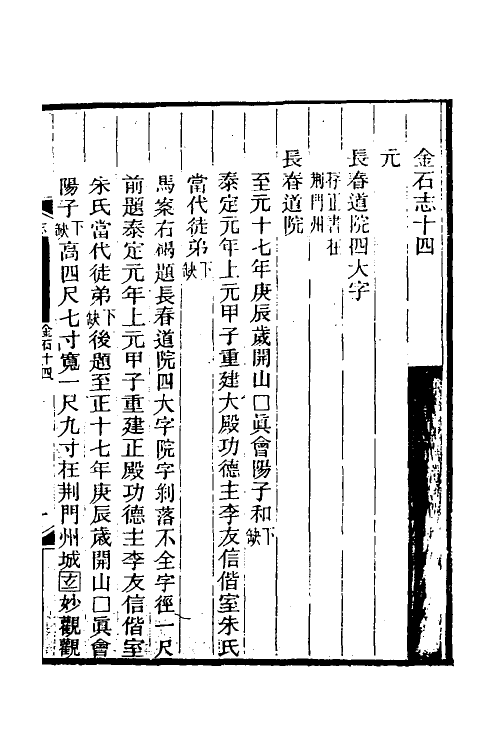 金石志十四
元
長春道院四大字
存正書在
荆門州
長春道院
至元十七年庚辰歲開山□眞會陽子和下缺
泰定元年上元甲子重建大殿功德主李友信偕室朱氏
當代徒弟下缺
馬案右碣題長春道院四大字院字剝落不全字徑一尺
前題泰定元年上元甲子重建正殿功德主李友信偕室
朱氏當代徒弟下缺後題至正十七年庚辰歲開山□眞會
陽子下缺高四尺七寸寬一尺九寸在荆門州城玄妙觀觀
金石十四